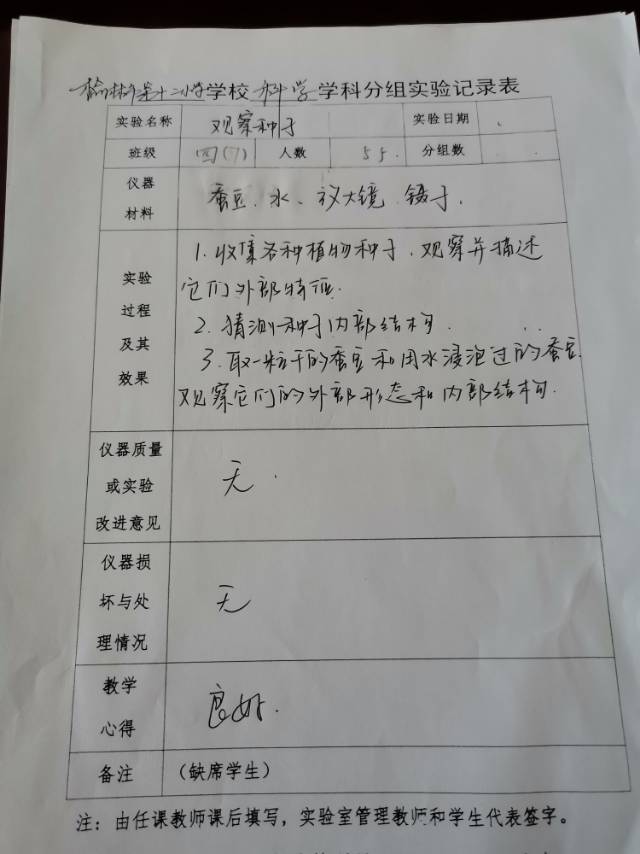 榆林市第十二小学学校 科学 学科分组实验记录表
实验名称 观察种子 实验日期
班级 四(7) 人数 55. 分组数
仪器材料 蚕豆、水、放大镜、镊子.
实验过程及其效果
1.收集各种植物种子,观察并描述
它们外部特征.
2.猜测一种子内部结构.
3.取一粒干的蚕豆和用水浸泡过的蚕豆
观察它们的外部形态和内部结构.
仪器质量或实验改进意见 无.
仪器损坏与处理情况 无
教学心得 良好.
备注 (缺席学生)
注:由任课教师课后填写,实验室管理教师和学生代表签字。